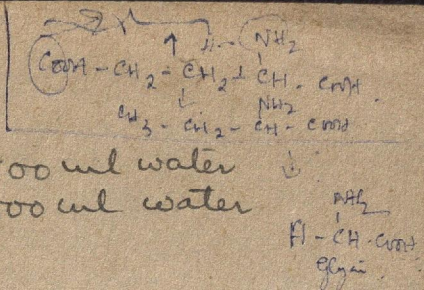 NH2
COOH - CH2 - CH2 - CH - COOH
NH2
CH3 - CH2 - CH - COOH
00 ml water
00 ml water
NH2
H - CH - COOH